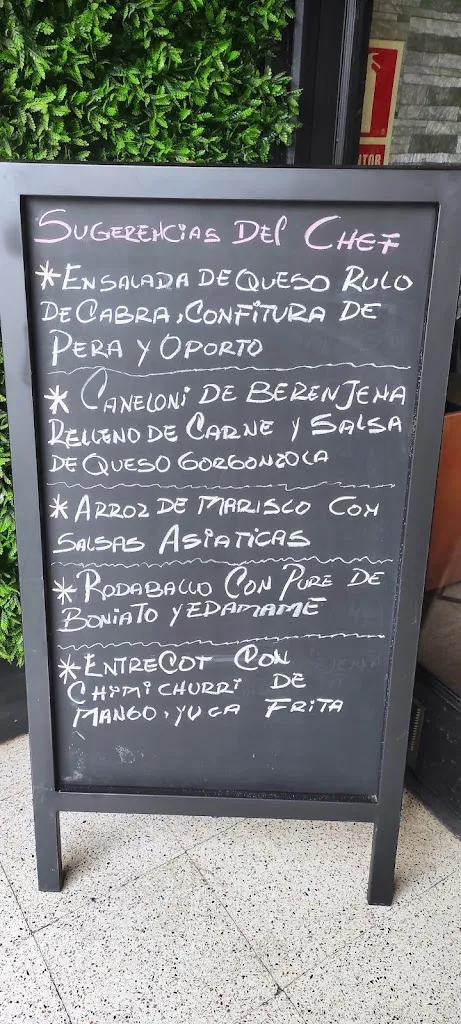 SUGERENCIAS DEL CHEF
* ENSALADA DE QUESO RULO
DE CABRA, CONFITURA DE
PERA Y OPORTO
* CANELONI DE BERENJENA
RELLENO DE CARNE Y SALSA
DE QUESO GORGONZOLA
* ARROZ DE MARISCO CON
SALSAS ASIATICAS
* RODABALLO CON PURE DE
BONIATO Y EDAMAME
* ENTRECOT CON
CHIMICHURRI DE
MANGO, YUCA FRITA